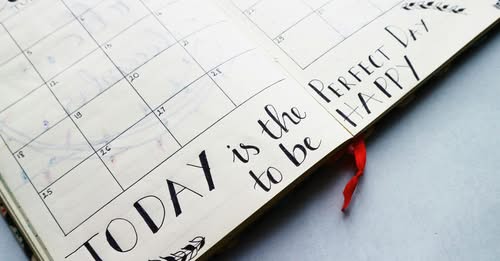 5
12
19
20
21
18
26
27
28
25
TODAY is the PERFECT DAY
to be HAPPY